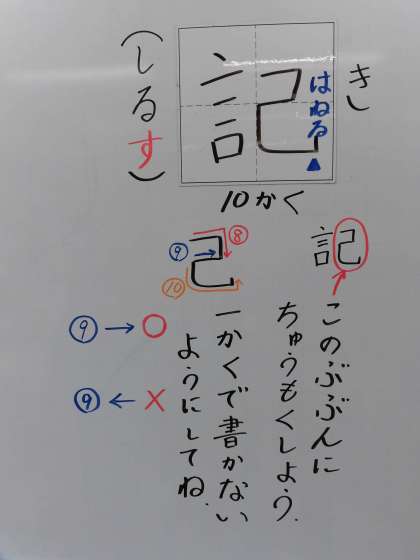 き
(しるす)
記
はねる
10かく
記
このぶぶんに
ちゅうもくしよう.
己
⑧
⑨
⑩
一かくで書かない
ようにしてね.
⑨→○
⑨←×